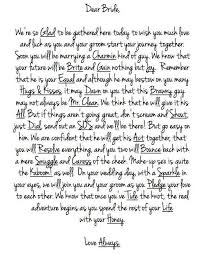 Dear Bride,
We're so Glad to be gathered here today, to wish you much love
and luck as you and your groom start your journey together.
Soon you will be marrying a Charmin kind of guy. We know that
your future will be Brite and Gain nothing but Joy. Remember
that he is your Equal and although he may bestow on you many
Hugs & Kisses, it may Dawn on you that this Brawny guy
may not always be Mr. Clean. We think that he will give you his
All. But if things aren't going great, don't scream and Shout,
just Dial, send out an SOS and we'll be there! But go easy on
him. We are confident that it will be his Act together, that
you will Resolve everything, and you two will Bounce back with
a mere Snuggle and Caress of the cheek. Make-up sex is quite
the Fabom! as well. On your wedding day, with a Sparkle in
your eyes, we will join you and your groom as you Pledge your love
to each other. We know that once you've Tide the knot, the real
adventure begins as you spend the rest of your Life
with your Honey.
Love Always,